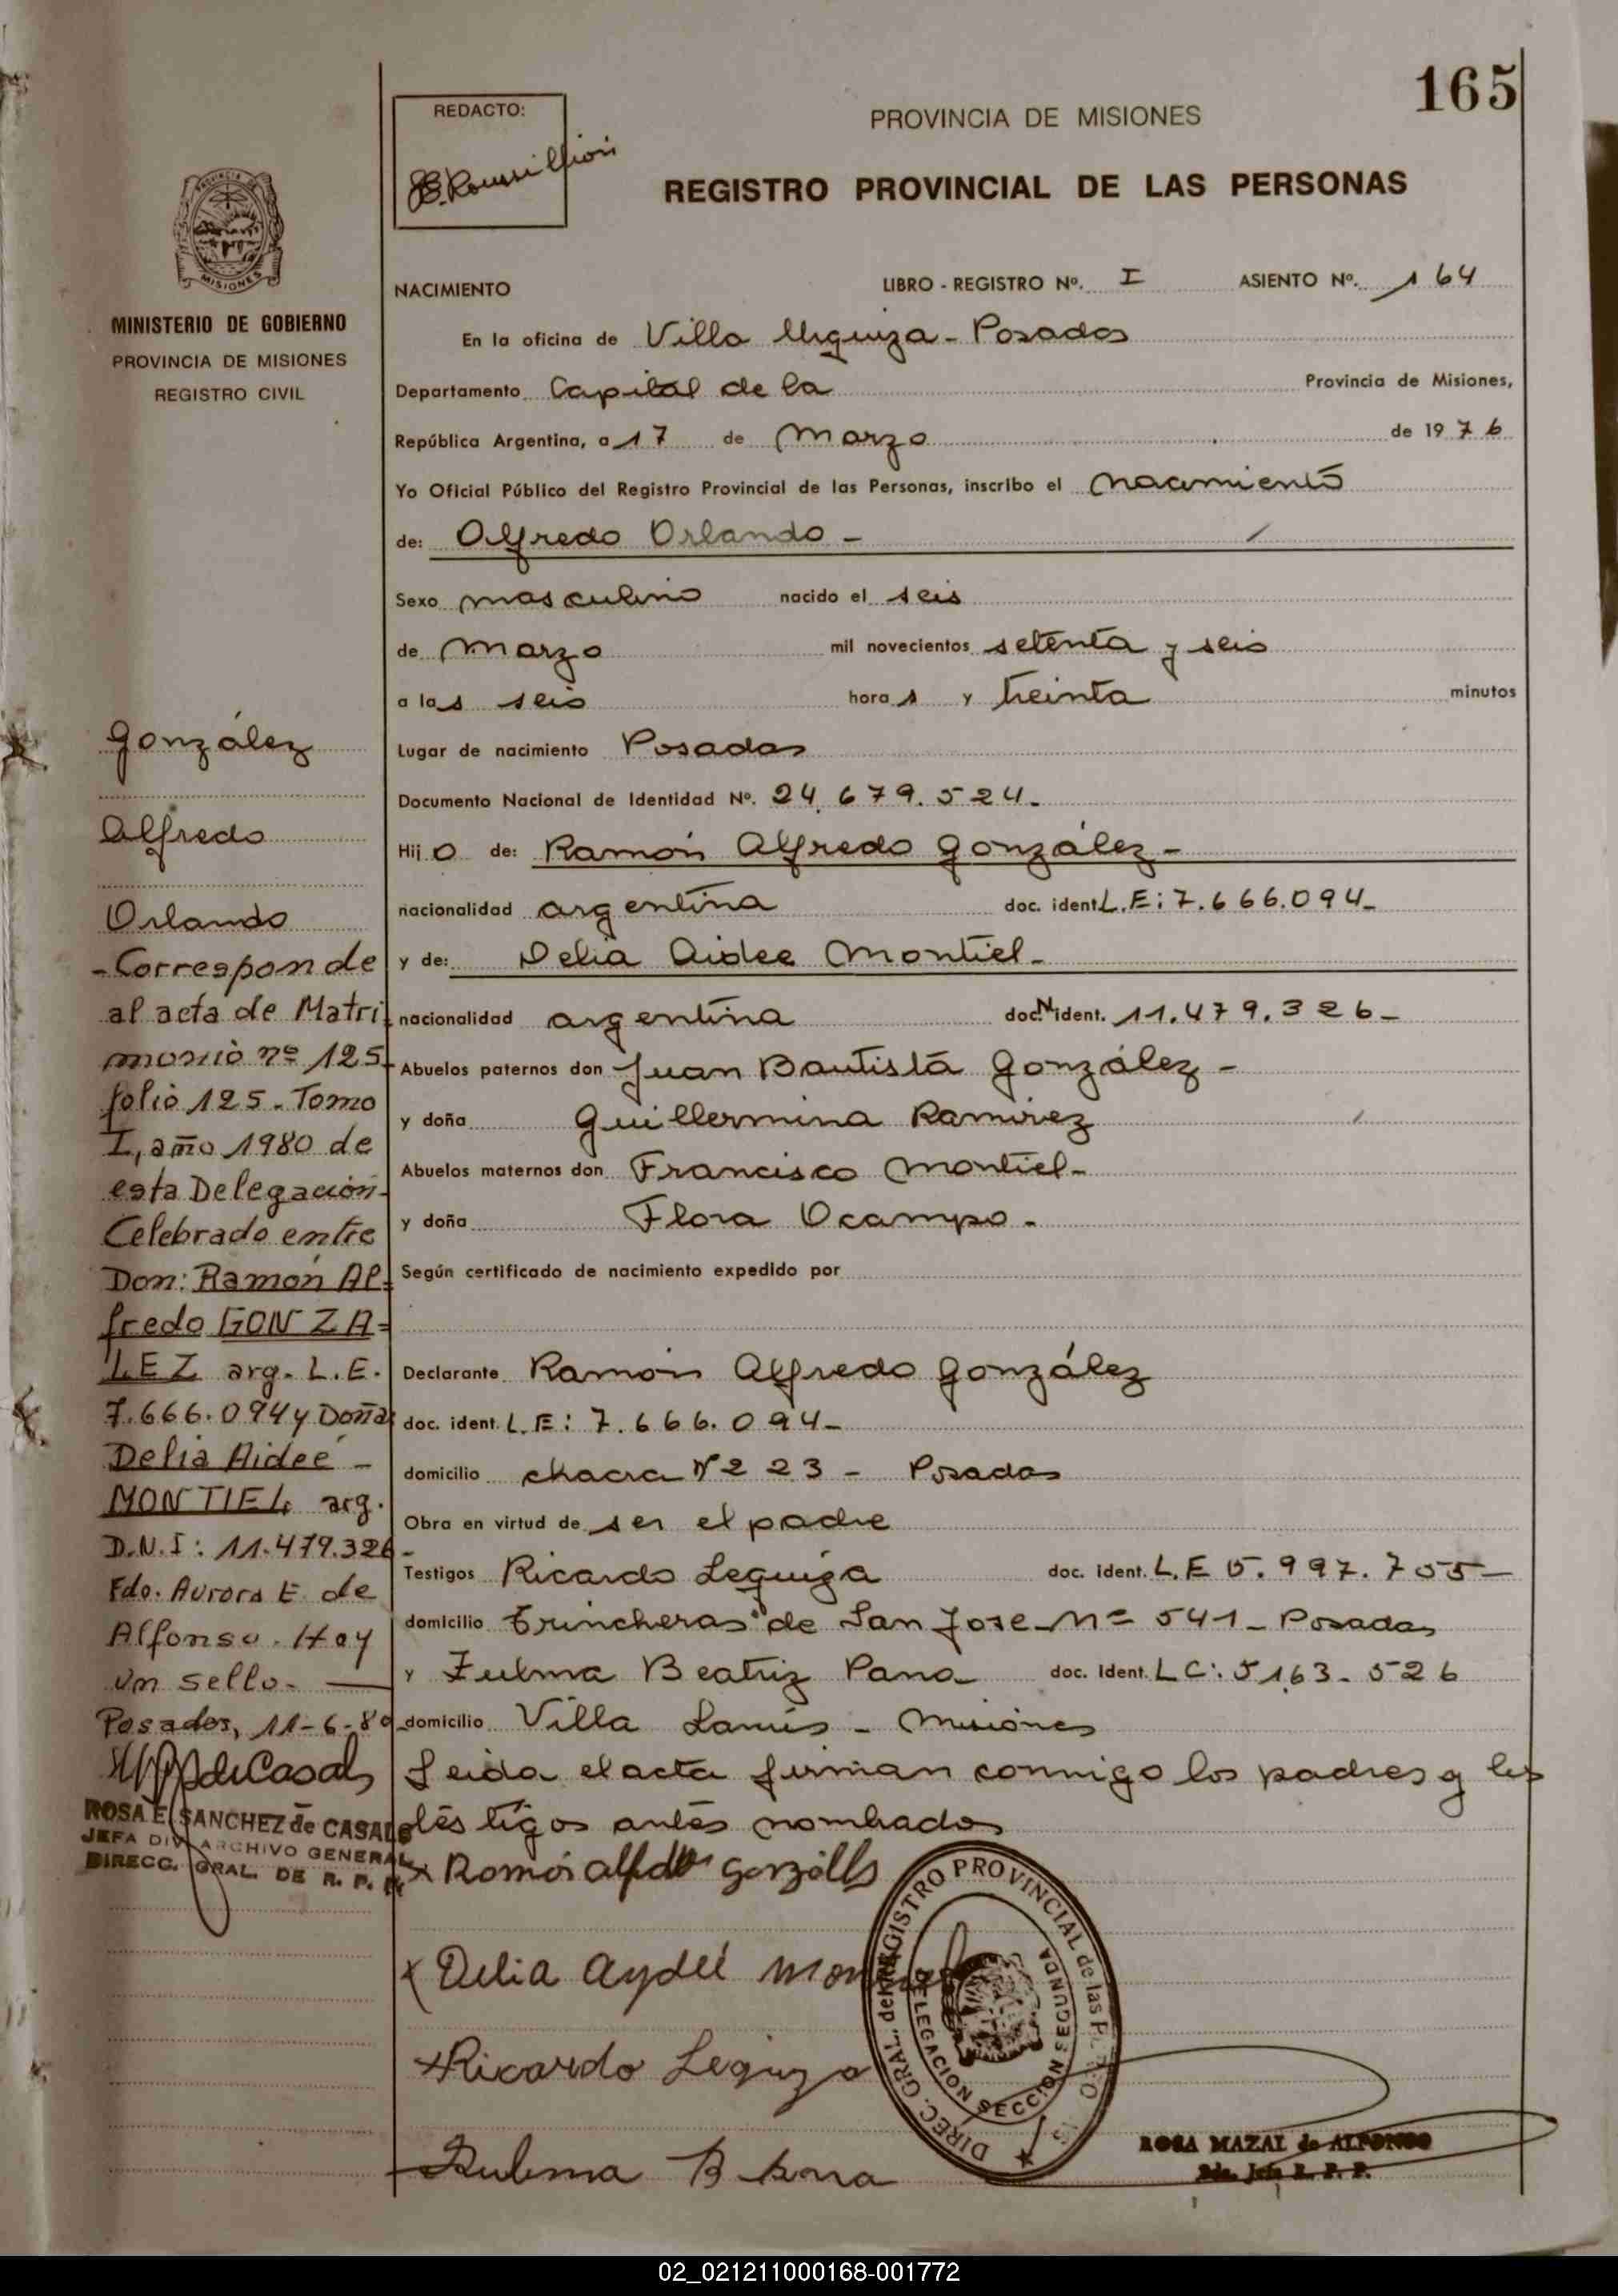 165
REDACTO:
B. Roussillion
PROVINCIA DE MISIONES
REGISTRO PROVINCIAL DE LAS PERSONAS
PROVINCIA DE
MISIONES
MINISTERIO DE GOBIERNO
PROVINCIA DE MISIONES
REGISTRO CIVIL
NACIMIENTO LIBRO - REGISTRO Nº. I ASIENTO Nº. 164
En la oficina de Villa Urquiza - Posadas
Departamento Capital de la Provincia de Misiones,
República Argentina, a 17 de Marzo de 1976
Yo Oficial Público del Registro Provincial de las Personas, inscribo el nacimiento
de: Alfredo Orlando -
Sexo masculino nacido el seis
de Marzo mil novecientos setenta y seis
a las seis horas y treinta minutos
Lugar de nacimiento Posadas
Documento Nacional de Identidad Nº. 24.679.524.
Hijo de: Ramón Alfredo González -
nacionalidad argentina doc. ident. L.E: 7.666.094-
y de: Delia Aidee Montiel -
nacionalidad argentina doc. N ident. 11.479.326-
Abuelos paternos don Juan Bautista González -
y doña Guillermina Ramirez
Abuelos maternos don Francisco Montiel -
y doña Flora Ocampo -
Según certificado de nacimiento expedido por
Declarante Ramón Alfredo González
doc. ident. L.E: 7.666.094-
domicilio chacra Nº 223 - Posadas
Obra en virtud de ser el padre
Testigos Ricardo Leguiza doc. ident. L.E 5.997.755-
domicilio Trincheras de San Jose Nº 541 - Posadas
y Zulma Beatriz Pana doc. ident. LC: 5163.526
domicilio Villa Lanús - Misiones
Leida el acta firman conmigo los padres y los
testigos antes nombrados
González
Alfredo
Orlando
- Corresponde
al acta de Matri
monio nº 125
folio 125 - Tomo
I, año 1980 de
esta Delegación-
Celebrado entre
Don: Ramón Al-
fredo GONZA=
LEZ arg. L.E.
7.666.094 y Doña
Delia Aideé -
MONTIEL arg.
D.N.I: 11.479.326-
Fdo. Aurora E. de
Alfonso. Hay
un sello. —
Posadas, 11-6-80
de Casals
ROSA E. SANCHEZ de CASALS
JEFA DIV ARCHIVO GENERAL
DIRECC. GRAL. DE R. P. P.
x Ramón Alfredo González
x Delia Aydeé Montiel
x Ricardo Leguiza
Zulema B Pana
DIREC. GRAL. del REGISTRO PROVINCIAL de las P.
DELEGACION SECCION SEGUNDA
ROSA MAZAL de ALFONSO
Jefa R. P. P.
02_021211000168-001772